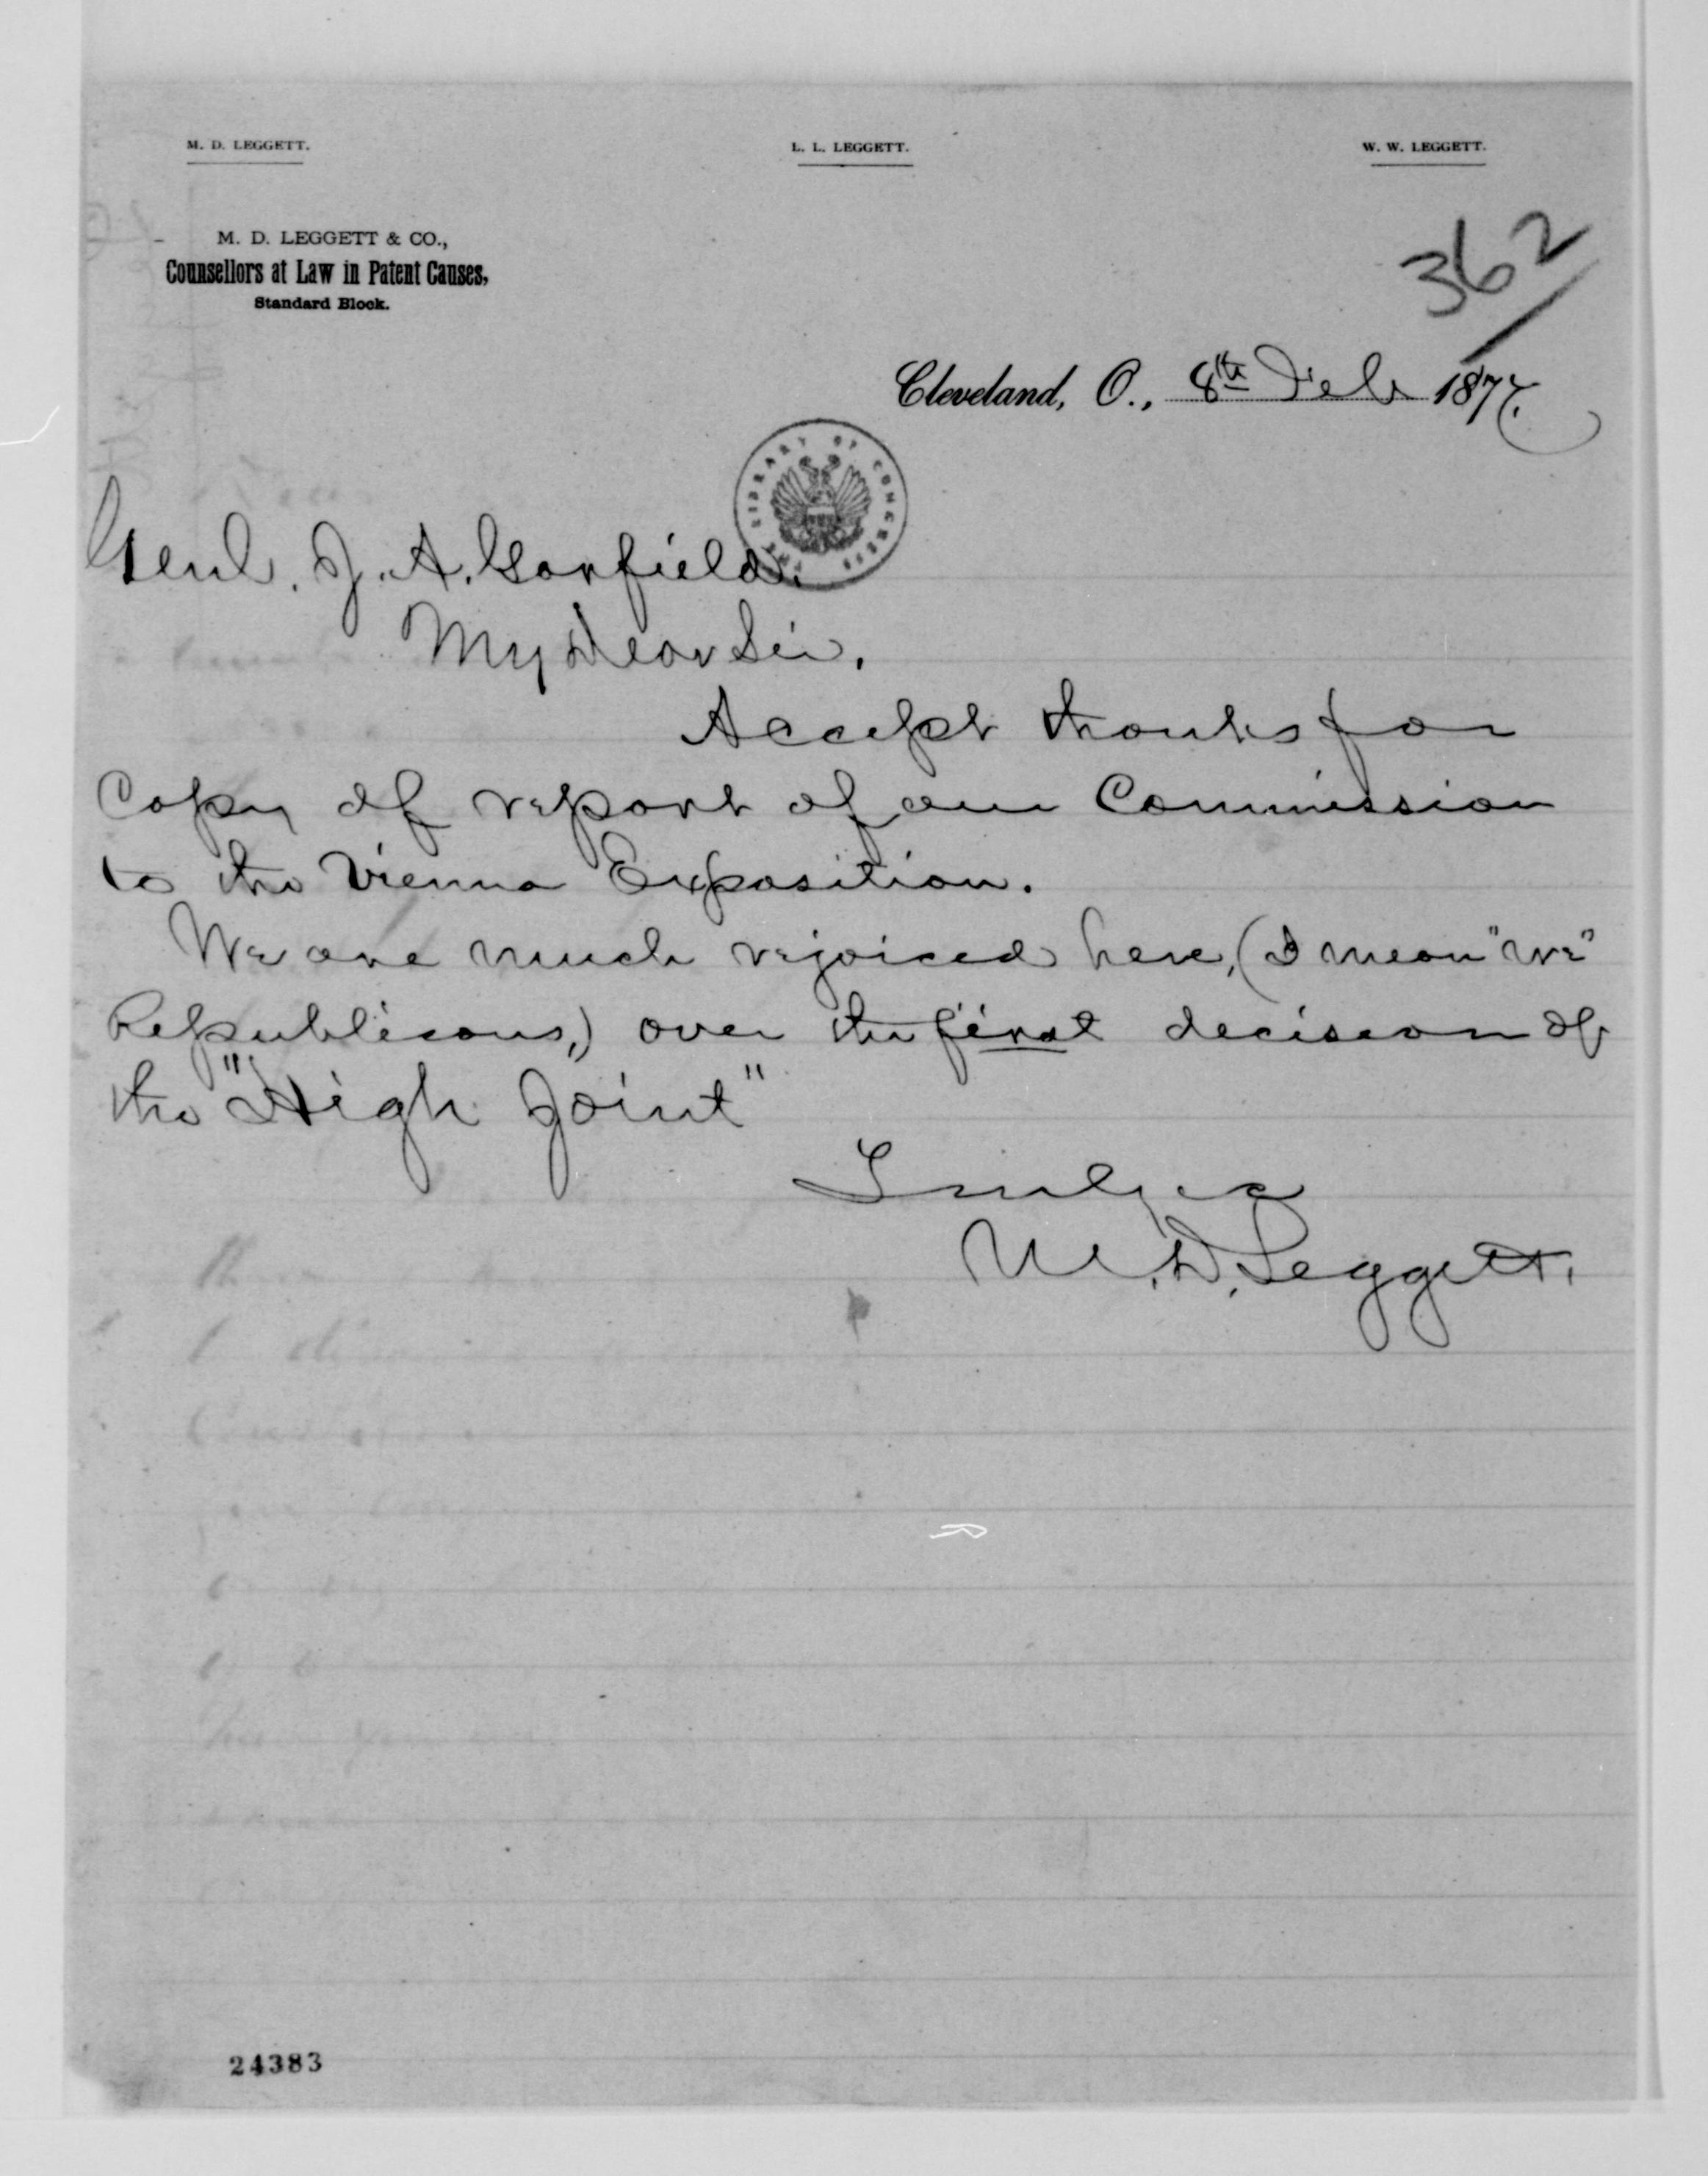 M. D. LEGGETT. L. L. LEGGETT. W. W. LEGGETT.
M. D. LEGGETT & CO.,
Counsellors at Law in Patent Causes,
Standard Block.
362
Cleveland, O., 8th Feb 1877.
THE LIBRARY OF CONGRESS
Genl. J. A. Garfield.
My Dear Sir.
Accept thanks for
Copy of report of our Commission
to the Vienna Exposition.
We are much rejoiced here, (I mean "we"
Republicans,) over the first decision of
the "High Joint"
Truly &c
M. D. Leggett.
24383